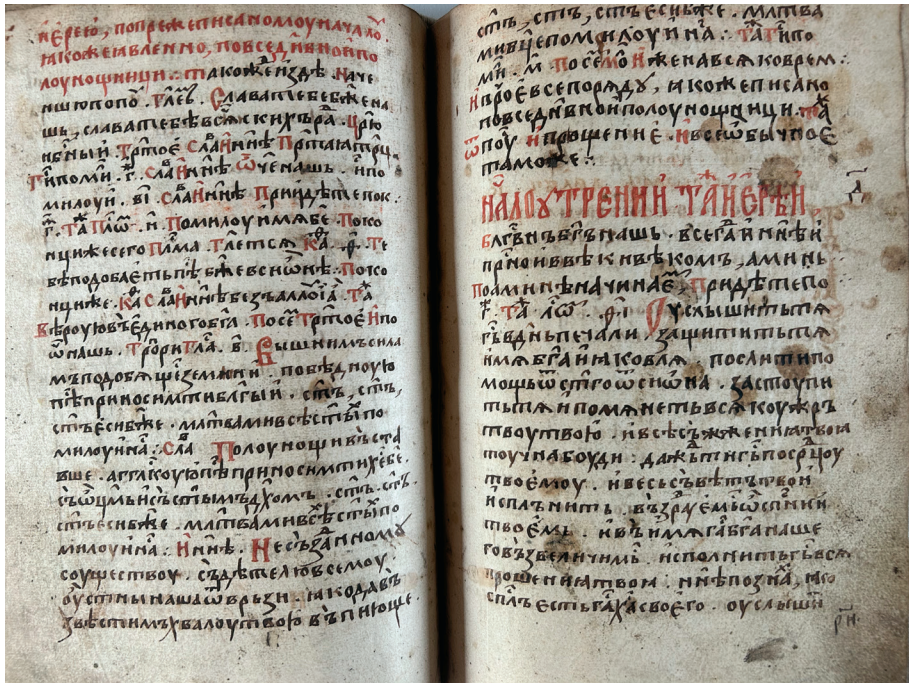 їерею, попрежеписаномоу начало.
ꙗкоже ꙗвленно, повседн҃внои по
лоунощници ⁘ такоже и здѣ. наче
ншю попоⷡ҇. гл҃еⷮ. Слава тебе бж҃е на
шь, слава тебѣ всꙗскихъ раⷣ. Црю
нб҃ныи. Трт҃ое Слаⷡ И нн҃ѣ Прт҃аꙗ трⷪ҇ц
Гиⷭ҇ помиⷧ. г҃. слаⷡ И нн҃ѣ Ѿче нашь. и по
милоуи. в҃і. слаⷡ И нн҃ѣ. Придѣте пок
г҃. Та Пⷭ҇лѡⷨ. н҃. Помилоуи мꙗ б҃е. Поко
нци же сего
бѣ подобаеть пѣⷭ҇ бж҃е в сиѡнѣ. Поко
нци же.
Вѣроую въ единого б҃га. Посеⷨ Трт҃ое И по
ѿ нашь. Тропⷬ҇ари Гла. в҃. Вышнимъ сила
мъ подобꙗщеⷭ҇ земнїи. побѣдноую
пѣⷭ҇ приносимти бл҃гыи. ст҃ъ, ст҃ъ,
ст҃ъ еси бж҃е. мл҃твами всѣⷯ ст҃ыⷯ по
милоуи на. Слаⷡ Полоунощи въста
вше. аггл҃скоую пѣⷭ҇ приносимти х҃е б҃е.
съ ѡц҃мь и съ ст҃ымъ дх҃омъ. ст҃ъ. ст҃ъ.
ст҃ъ еси бж҃е. мл҃твами всѣⷯ ст҃ыⷯ по
милоуи на. И нн҃ѣ. Несъзаⷣнномоу
соуществоу. съдѣтелю всемоу.
оустны наша ѿвръзи. ꙗко да въ
звѣстимъ хвалоу твою въпиюще.
ст҃ъ, ст҃ъ, ст҃ъ еси бж҃е. мл҃твами
помилоуи на. Таⷤ Гиⷭ҇ по
миⷧ. м҃. Посемⷤ Иже на всꙗко врем ⁘
И вⷭ҇е по рꙗду, ꙗкоже писано
повседн҃внои полоунощници. таⷤ
ѿпоуⷭ҇ И прощение. И все ѡбычное
таможе ⁘
НАЧАЛО УТРЕНИИ ТАⷤ ИЕРѢИ
Блг҃внъ б҃гъ нашь. всегда и нн҃ѣ и
прⷭ҇но и в вѣки вѣкомъ, аминь
По амини начинаеⷮ, Придѣте по
г҃. Таⷤ Пⷭ҇лѡⷨ. ѳ҃і. Услышитьтꙗ
г҃ь въ дн҃ь печали, защититьтꙗ
имꙗ б҃га иꙗковлꙗ. послитити по
мощь ѿ ст҃го ѿ сиѡна. застоупи
тьтꙗ и помꙗнеть всꙗкоу жрът
твоу твою. и всѣсъжжениꙗ твоꙗ
тоучна боуди. дажⷣьти г҃ь по срⷣцоу
твоемоу. и весь съвѣтъ твои
исплънить. възраⷣуемⷭ҇ѿ сп҃нии
твоемь. и въ имꙗ г҃а б҃га наше
го възвеличимⷭ҇. исполнить г҃ь всꙗ
прошениꙗ твоꙗ. нн҃ѣ познаⷯ, ꙗко
сп҃лъ есть г҃ь х҃а своего. оуслыши
рн҃